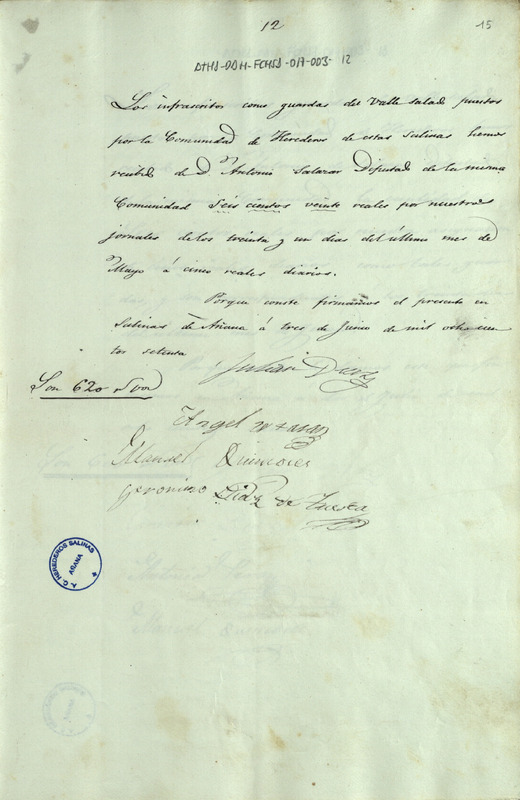 12
15
ATHS-DDM-FCHSS-017-003-12
Los infrascritos como guardas del Valle salado puestos
por la Comunidad de Herederos de estas Salinas hemos
recibido de D. Antonio Salazar Diputado de la misma
Comunidad Seis cientos veinte reales por nuestros
jornales de los treinta y un dias del último mes de
Mayo á cinco reales diarios.
Porque conste firmamos el presente en
Salinas de Añana á tres de Junio de mil ochocien
tos setenta
Julian Diez
Son 620 rs von
Angel
Manuel
Geronimo Diaz de Tuesta
A. C. HEREDEROS SALINAS
AÑANA